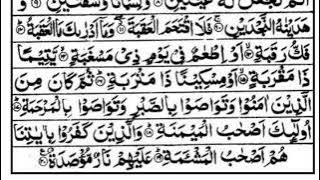 اَلَمْ نَجْعَلْ لَّهٗ عَيْنَيْنِ ۙ۝۸ وَلِسَانًا وَّشَفَتَيْنِ ۙ۝۹ وَ
هَدَيْنٰهُ النَّجْدَيْنِ ۚ۝۱۰ فَلَا اقْتَحَمَ الْعَقَبَةَ ۖ۝۱۱ وَمَاۤ اَدْرٰىكَ مَا الْعَقَبَةُ ؕ۝۱۲
فَكُّ رَقَبَةٍ ۙ۝۱۳ اَوْ اِطْعٰمٌ فِيْ يَوْمٍ ذِيْ مَسْغَبَةٍ ۙ۝۱۴ يَّتِيْمًا
ذَا مَقْرَبَةٍ ۙ۝۱۵ اَوْ مِسْكِيْنًا ذَا مَتْرَبَةٍ ؕ۝۱۶ ثُمَّ كَانَ مِنَ
الَّذِيْنَ اٰمَنُوْا وَتَوَاصَوْا بِالصَّبْرِ وَتَوَاصَوْا بِالْمَرْحَمَةِ ؕ۝۱۷
اُولٰٓئِكَ اَصْحٰبُ الْمَيْمَنَةِ ؕ۝۱۸ وَالَّذِيْنَ كَفَرُوْا بِاٰيٰتِنَا
هُمْ اَصْحٰبُ الْمَشْـَٔمَةِ ؕ۝۱۹ عَلَيْهِمْ نَارٌ مُّؤْصَدَةٌ ۝۲۰